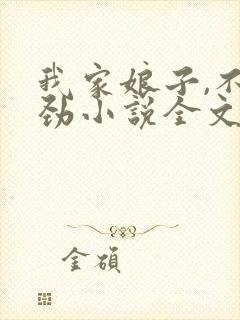 我家娘子,不
劲小说全文
金碩